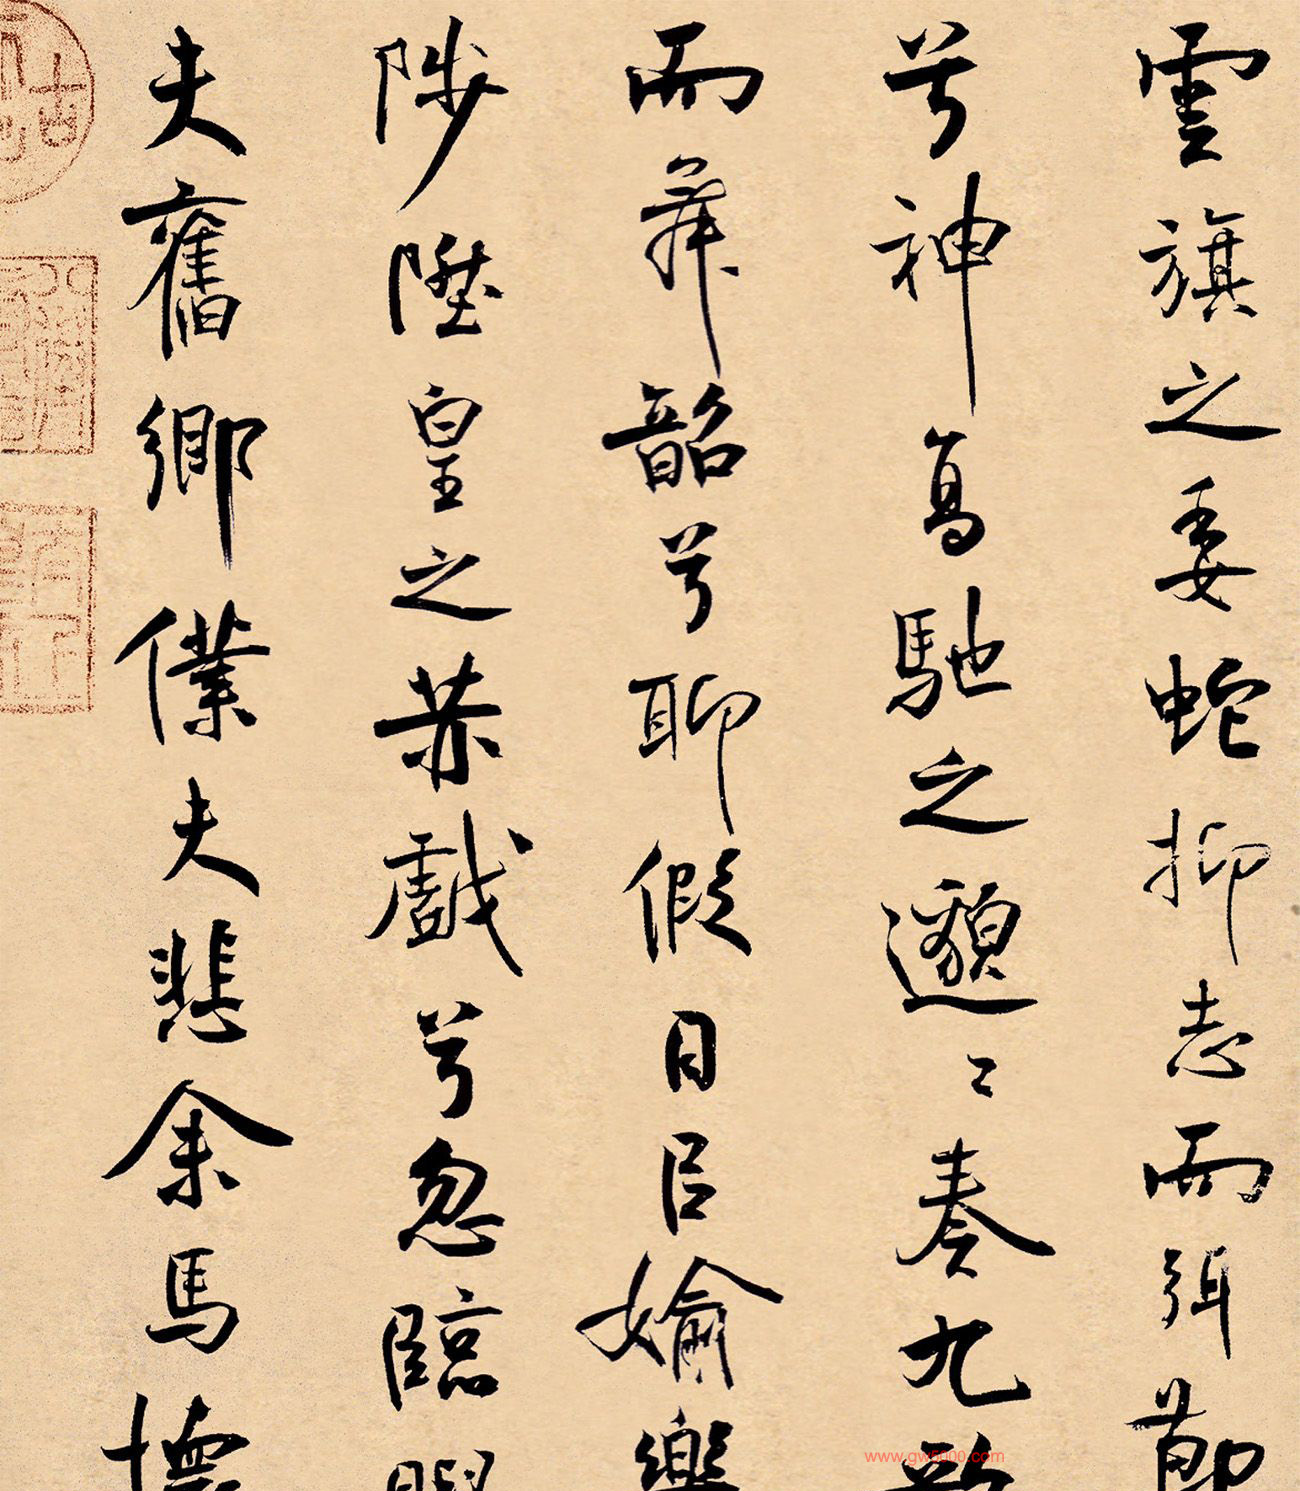 雲旗之委蛇抑志而弭節
兮神高馳之邈〻奏九歌
而舞韶兮聊假日以媮樂
陟陞皇之赫戲兮忽臨睨
夫舊鄉僕夫悲余馬懷
古
www.gw5000.com